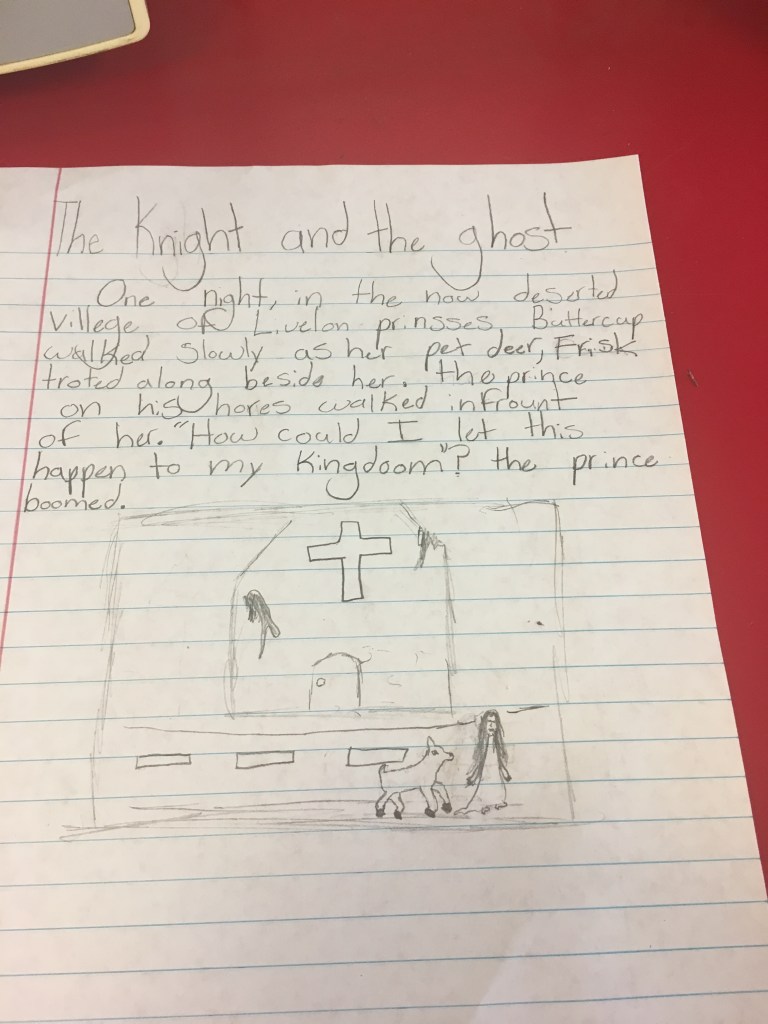 The Knight and the ghost
One night, in the now deserted
Villege of Livelon prinsses, Buttercup
walked slowly as her pet deer, Frisk
troted along beside her. the prince
on his hores walked infrount
of her. "How could I let this
happen to my Kingdoom"? the prince
boomed.